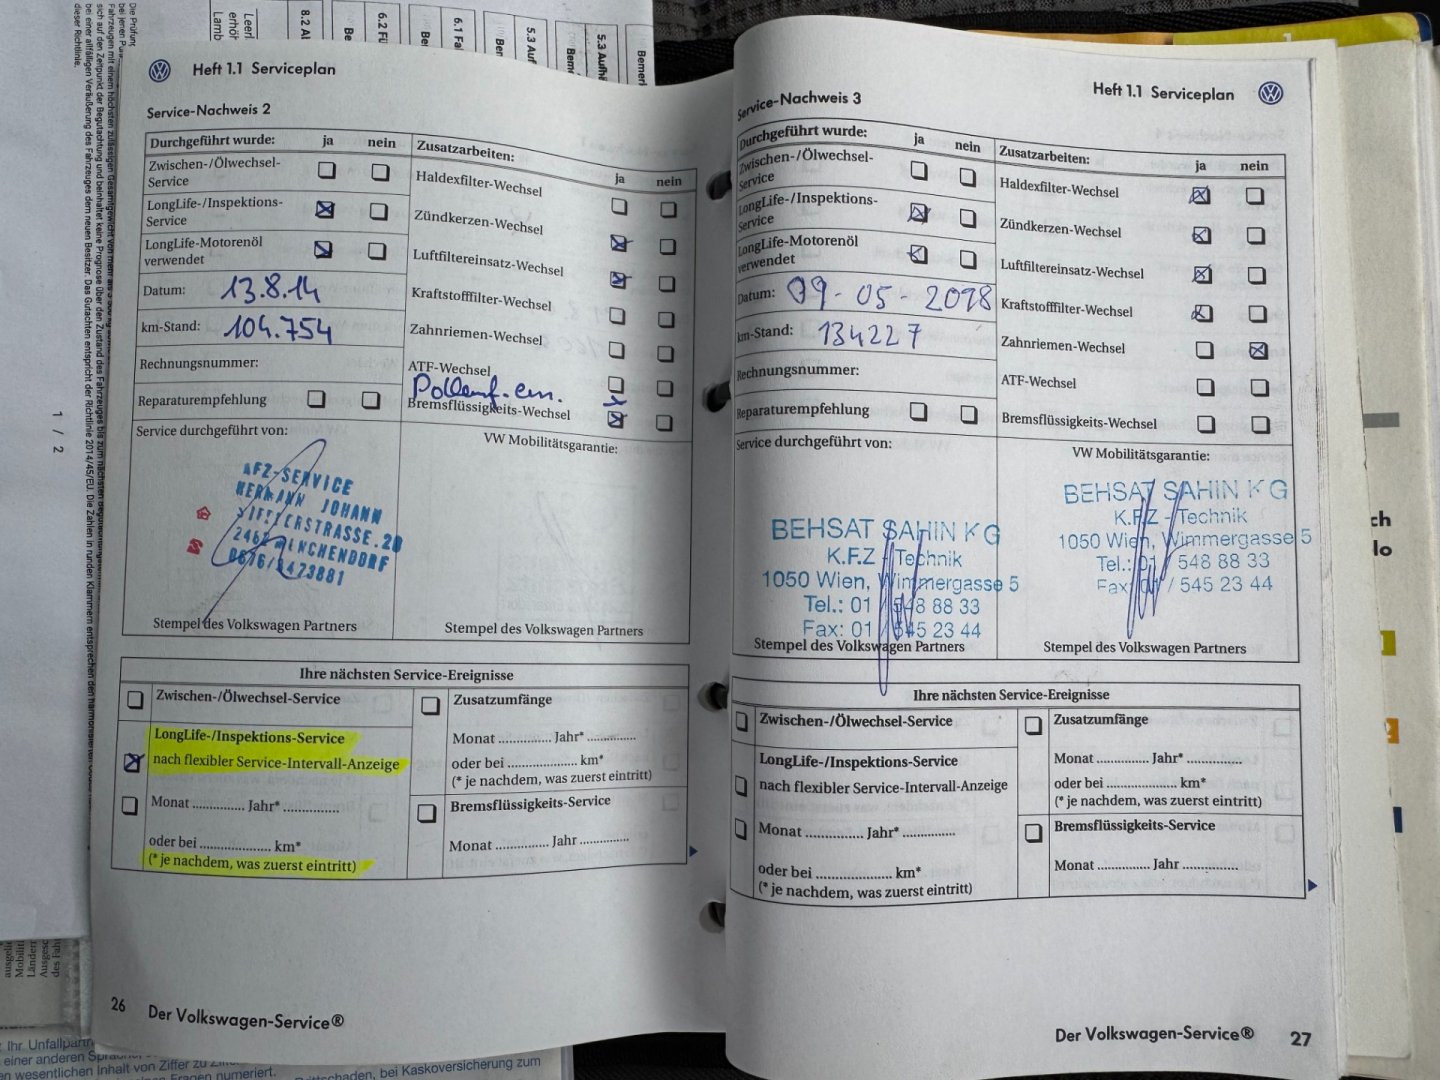 Heft 1.1 Serviceplan
Service-Nachweis 2
Durchgeführt wurde: ja nein
Zwischen-/Ölwechsel-
Service
LongLife-/Inspektions-
Service
LongLife-Motorenöl
verwendet
Datum: 13.8.14
km-Stand: 104.754
Rechnungsnummer:
Reparaturempfehlung
Zusatzarbeiten:
ja nein
Haldexfilter-Wechsel
Zündkerzen-Wechsel
Luftfiltereinsatz-Wechsel
Kraftstofffilter-Wechsel
Zahnriemen-Wechsel
ATF-Wechsel
Pollenf. ern.
Bremsflüssigkeits-Wechsel
Service durchgeführt von:
HERMANN JOHANN
Stempel des Volkswagen Partners
VW Mobilitätsgarantie:
Stempel des Volkswagen Partners
Ihre nächsten Service-Ereignisse
Zwischen-/Ölwechsel-Service
LongLife-/Inspektions-Service
nach flexibler Service-Intervall-Anzeige
Monat .............. Jahr* ..............
oder bei .................... km*
(* je nachdem, was zuerst eintritt)
Zusatzumfänge
Monat .............. Jahr* ..............
oder bei .................... km*
(* je nachdem, was zuerst eintritt)
Bremsflüssigkeits-Service
Monat .............. Jahr ..............
26 Der Volkswagen-Service®
Heft 1.1 Serviceplan
Service-Nachweis 3
Durchgeführt wurde: ja nein
Zwischen-/Ölwechsel-
Service
LongLife-/Inspektions-
Service
LongLife-Motorenöl
verwendet
Datum: 09-05-2018
km-Stand: 134227
Rechnungsnummer:
Reparaturempfehlung
Zusatzarbeiten:
ja nein
Haldexfilter-Wechsel
Zündkerzen-Wechsel
Luftfiltereinsatz-Wechsel
Kraftstofffilter-Wechsel
Zahnriemen-Wechsel
ATF-Wechsel
Bremsflüssigkeits-Wechsel
Service durchgeführt von:
BEHSAT SAHIN KG
K.F.Z - Technik
1050 Wien, Wimmergasse 5
Tel.: 01 / 548 88 33
Fax: 01 / 545 23 44
Stempel des Volkswagen Partners
VW Mobilitätsgarantie:
BEHSAT SAHIN KG
K.F.Z - Technik
1050 Wien, Wimmergasse 5
Tel.: 01 / 548 88 33
Fax: 01 / 545 23 44
Stempel des Volkswagen Partners
Ihre nächsten Service-Ereignisse
Zwischen-/Ölwechsel-Service
LongLife-/Inspektions-Service
nach flexibler Service-Intervall-Anzeige
Monat .............. Jahr* ..............
oder bei .................... km*
(* je nachdem, was zuerst eintritt)
Zusatzumfänge
Monat .............. Jahr* ..............
oder bei .................... km*
(* je nachdem, was zuerst eintritt)
Bremsflüssigkeits-Service
Monat .............. Jahr ..............
Der Volkswagen-Service® 27
1 / 2